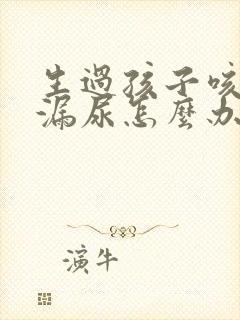 生過孩子咳
漏尿怎麼办
演牛